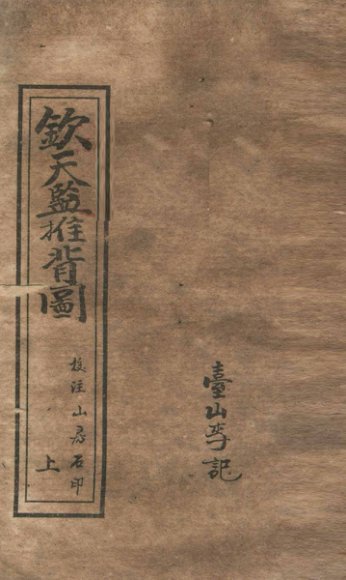 臺山李記
欽天監推背圖
校注山房石印
上